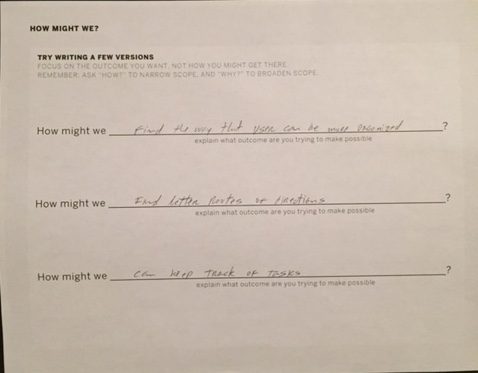 HOW MIGHT WE?
TRY WRITING A FEW VERSIONS
FOCUS ON THE OUTCOME YOU WANT, NOT HOW YOU MIGHT GET THERE.
REMEMBER: ASK "HOW?" TO NARROW SCOPE, AND "WHY?" TO BROADEN SCOPE.
How might we Find the way that user can be more organized ?
explain what outcome are you trying to make possible
How might we Find better Routes or Directions ?
explain what outcome are you trying to make possible
How might we can keep Track of Tasks ?
explain what outcome are you trying to make possible